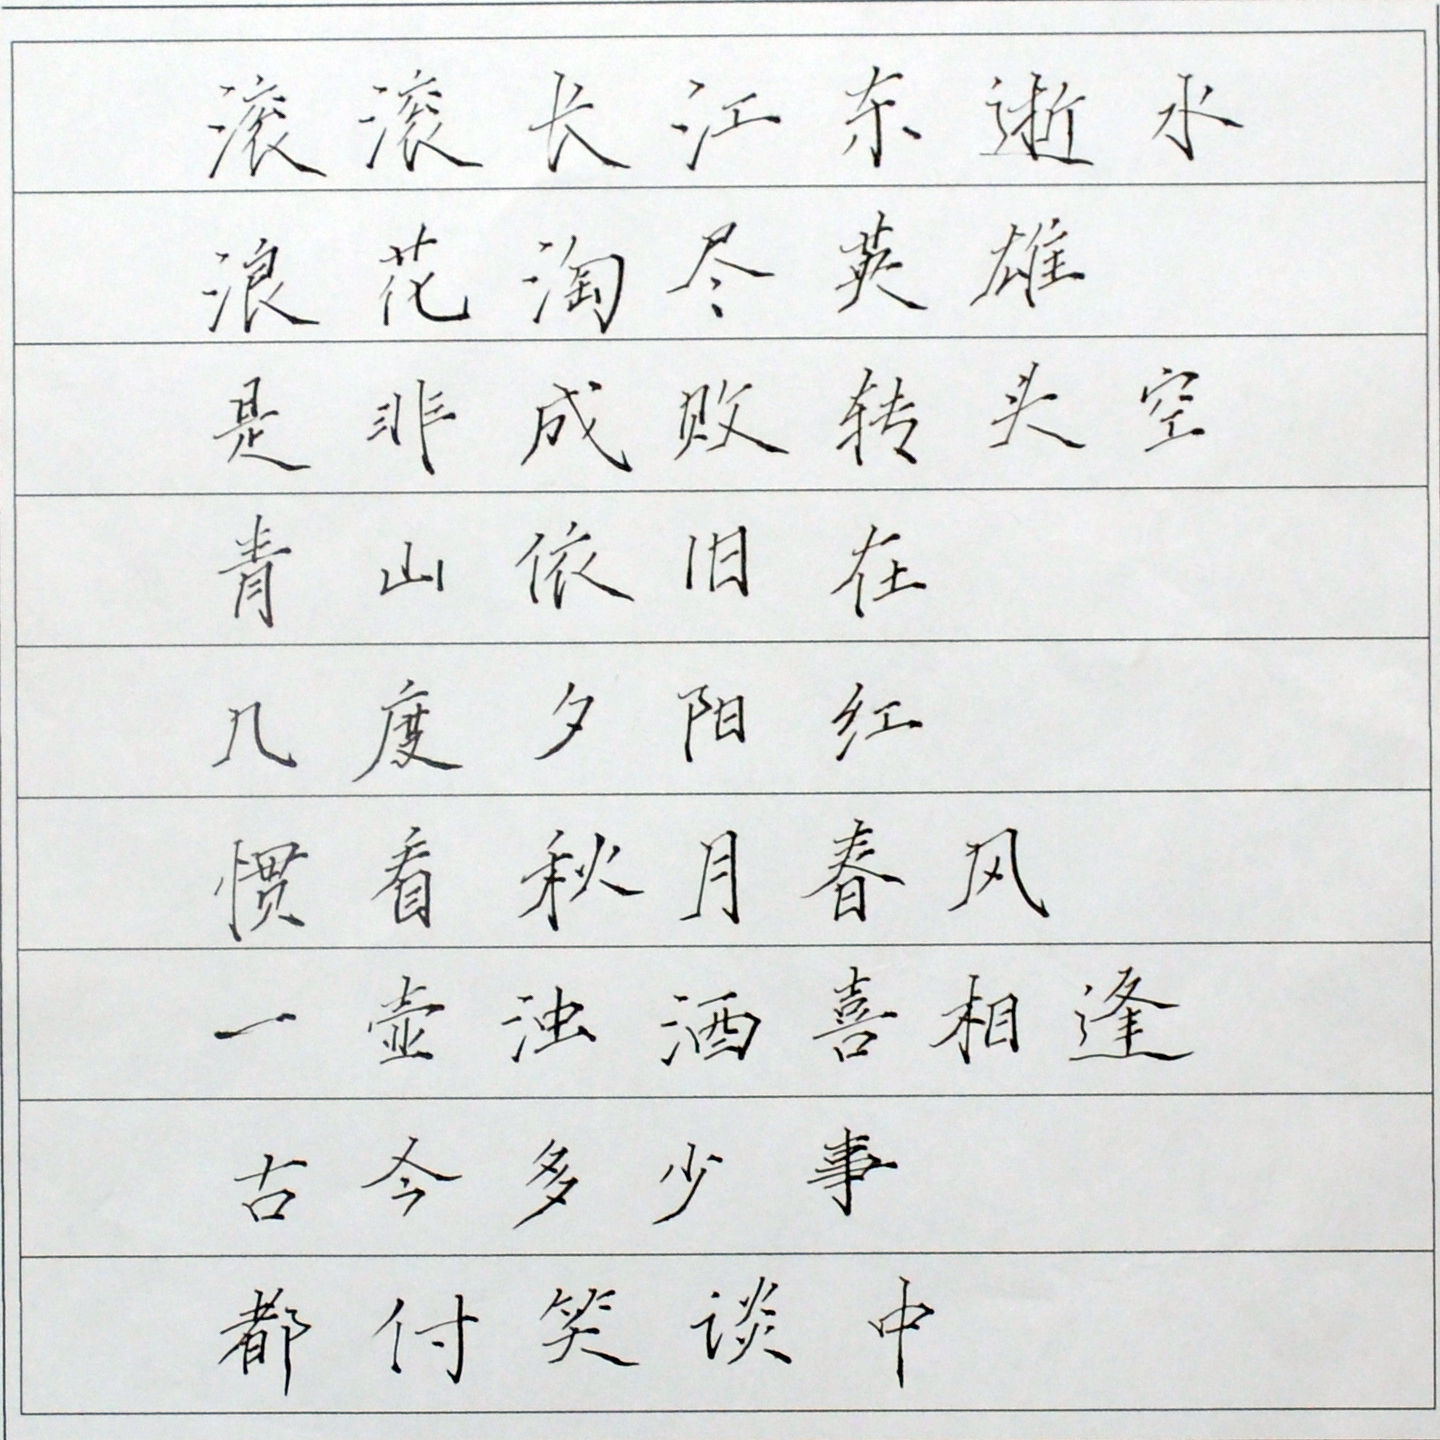 滚滚长江东逝水
浪花淘尽英雄
是非成败转头空
青山依旧在
几度夕阳红
惯看秋月春风
一壶浊酒喜相逢
古今多少事
都付笑谈中